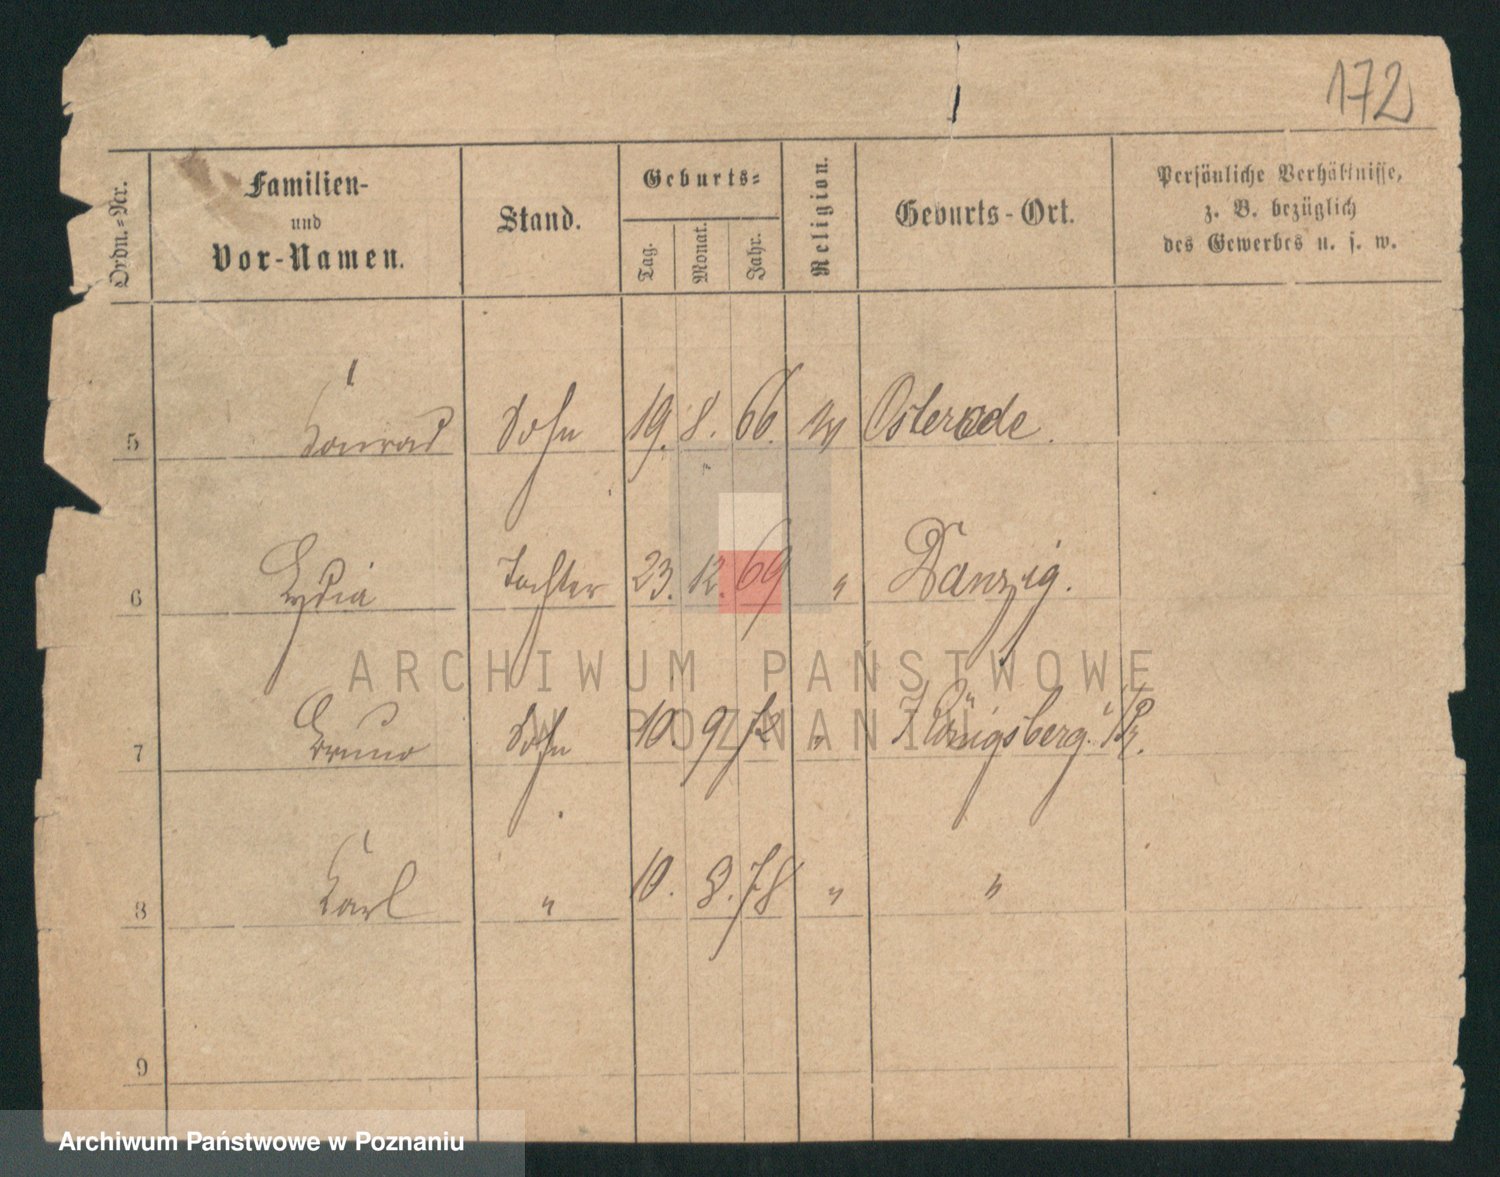 172
Ordn.-Nr.
Familien-
und
Vor-Namen.
Stand.
Geburts-
Tag.
Monat.
Jahr.
Religion.
Geburts-Ort.
Persönliche Verhältnisse,
z. B. bezüglich
des Gewerbes u. s. w.
5 Conrad Sohn 19. 8. 66. Osterode.
6 Lydia Tochter 23. 12. 69 " Danzig.
ARCHIWUM PAŃSTWOWE
W POZNANIU
7 Bruno Sohn 10. 9 72 " Königsberg i/Pr.
8 Carl " 10. 8. 78 " "
9
Archiwum Państwowe w Poznaniu